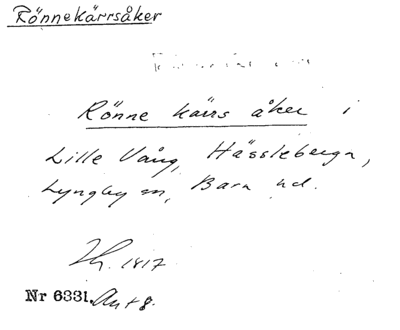 Rönnekärrsåker
Rönne kärrs åker i
Lille Vång, Hässleberga,
Lyngby sn, Bara hd.
Lh. 1817
Nr 6331. Akt 8.